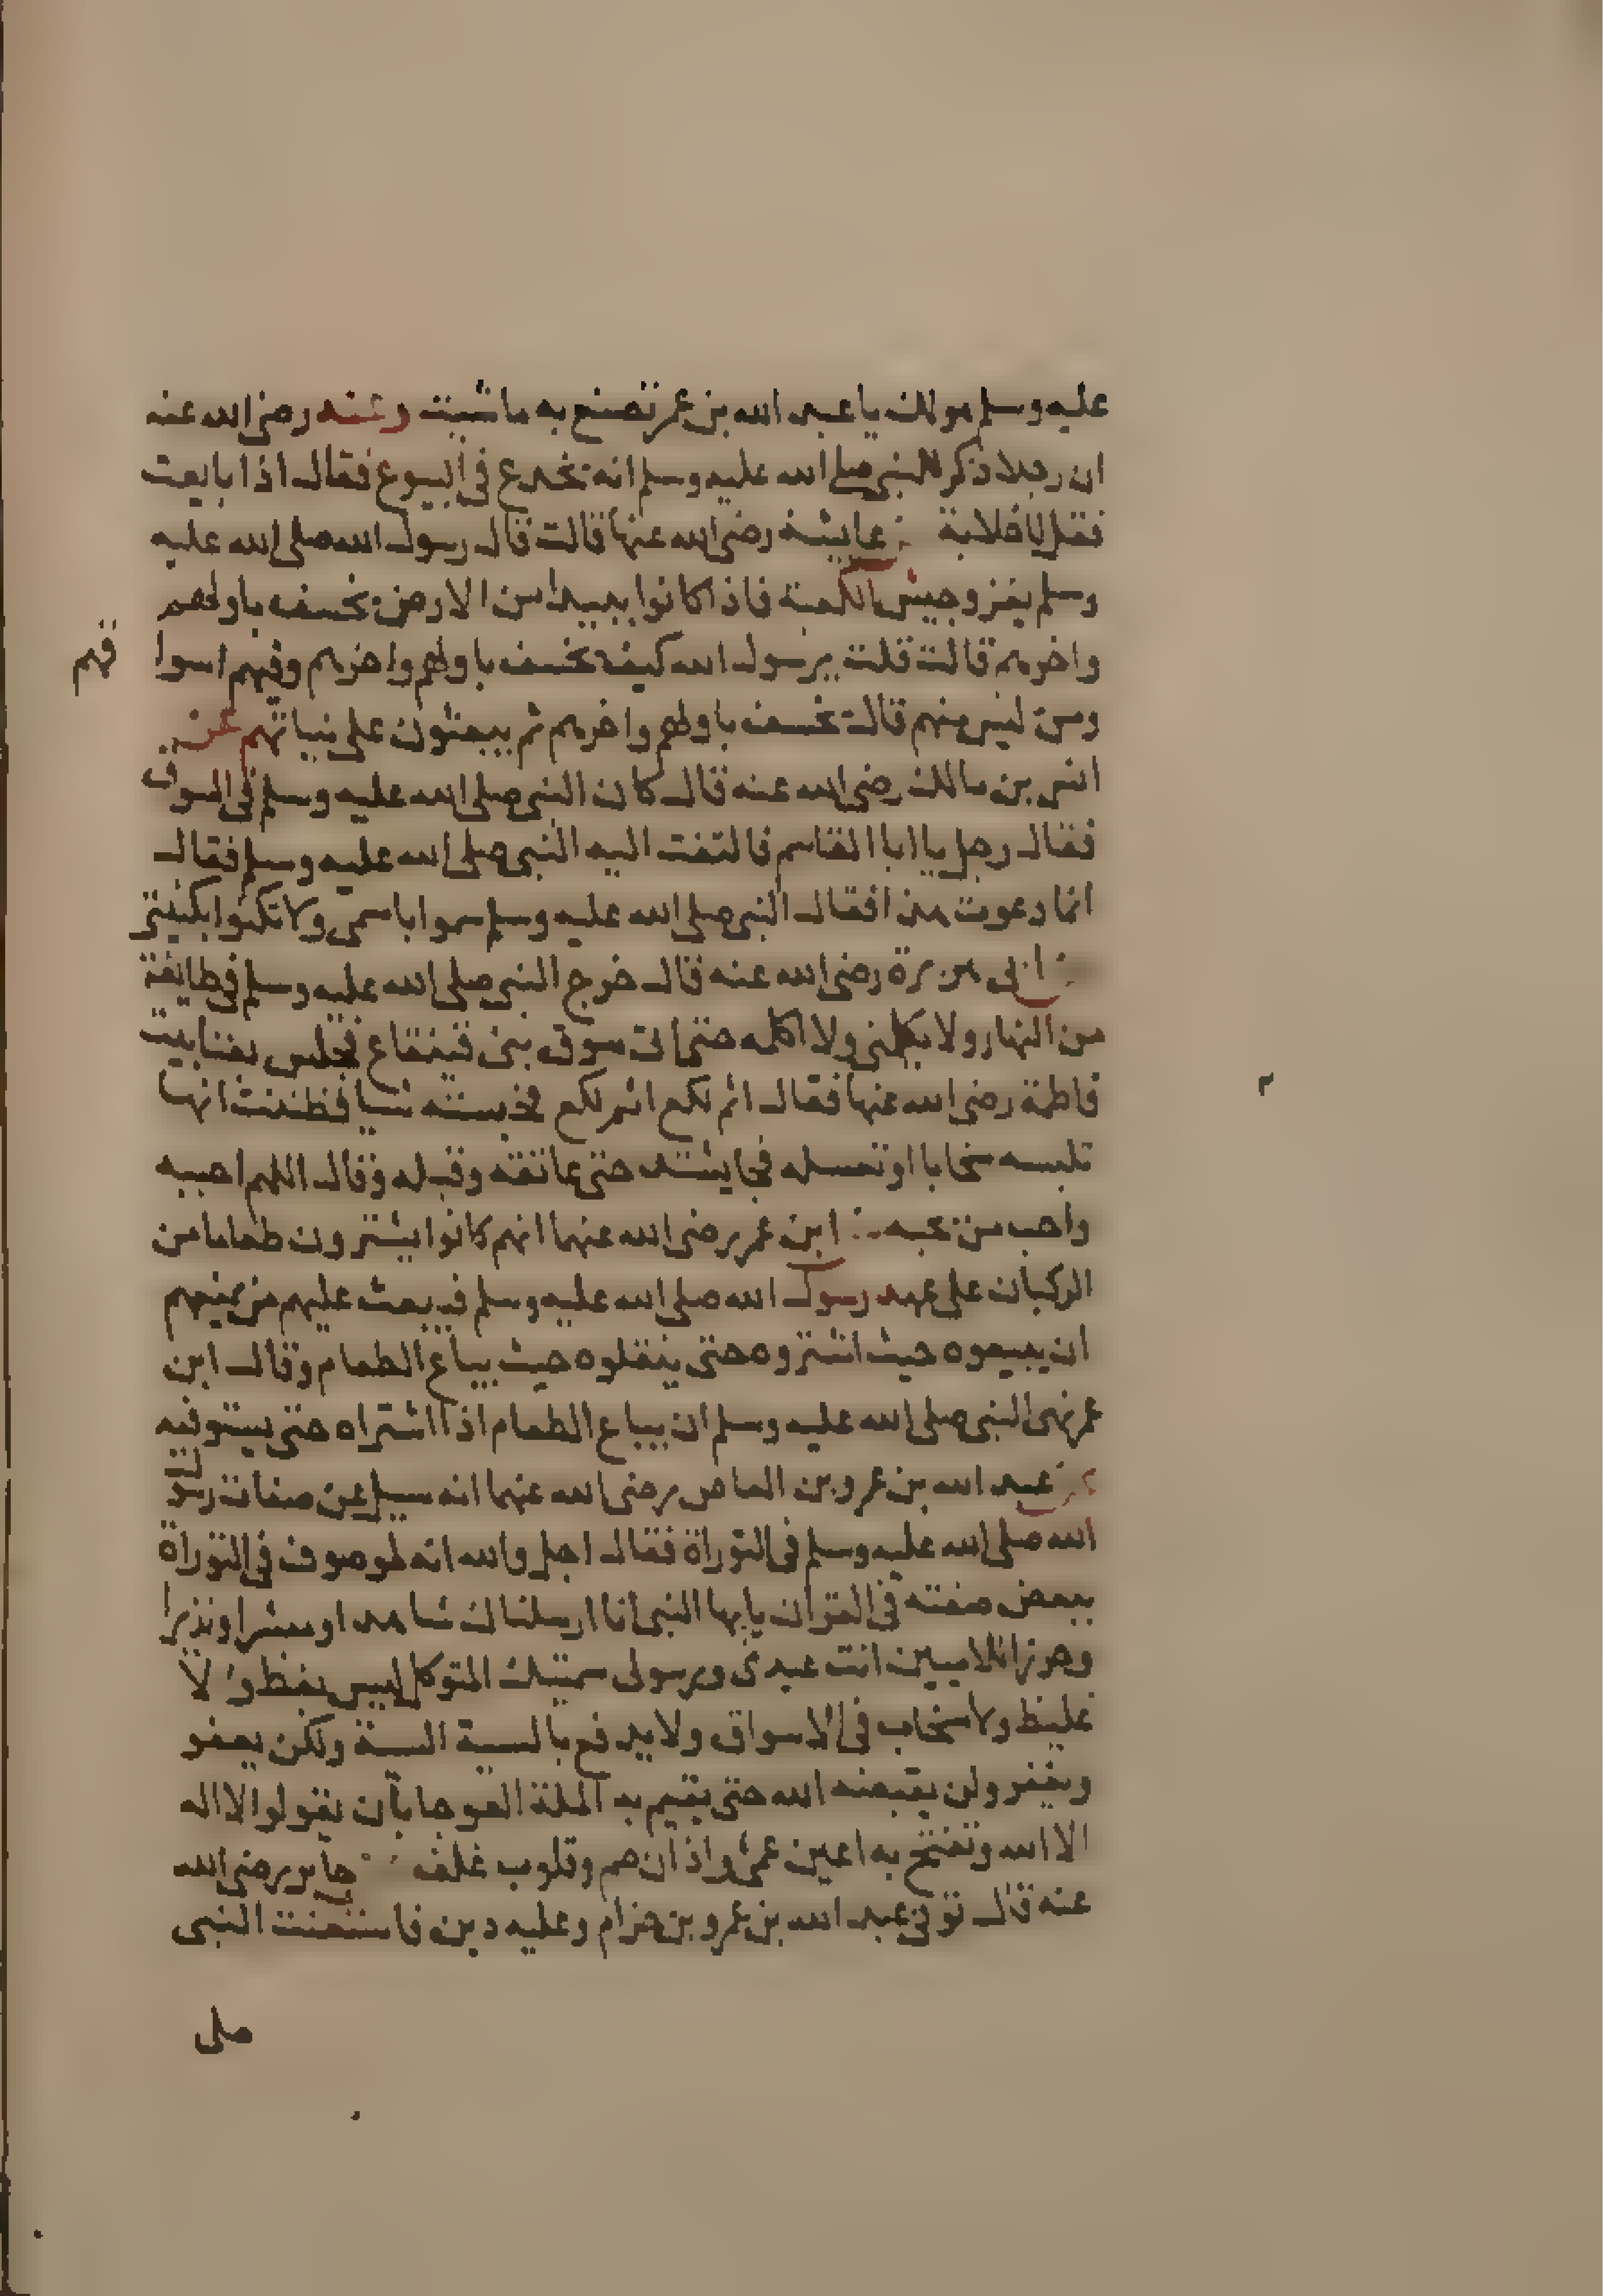 عليه وسلم هو لك يا عبد الله بن عمر تصنع به ما شيت وعنه رضى الله عنه
ان رجلا ذكر للنبى صلى الله عليه وسلم انه يخدع فى البيوع فقال اذا بايعت
فقل لا خلابة عايشة رضى الله عنها قالت قال رسول الله صلى الله عليه
وسلم يغزو جيش الكعبة فاذا كانوا ببيدا من الارض يخسف باولهم
واخرهم قالت قلت يرسول الله كيف يخسف باولهم واخرهم وفيهم اسوا
قهم
ومن ليس منهم قال يخسف باولهم واخرهم ثم يبعثون على نياتهم عن
انس بن مالك رضى الله عنه قال كان النبى صلى الله عليه وسلم فى السوق
فقال رجل يا ابا القاسم فالتفت اليه النبى صلى الله عليه وسلم فقال
انما دعوت هذا فقال النبى صلى الله عليه وسلم سموا باسمى ولا تكنوا بكنيتى
ابى هريرة رضى الله عنه قال خرج النبى صلى الله عليه وسلم فى طايفة
من النهار ولا يكلمنى ولا اكلمه حتى اتى سوق بنى قينقاع فجلس بفنا بيت
فاطمة رضى الله عنها فقال اثم لكع اثم لكع فحبسته شيا فظننت انها
تلبسه سخابا او تغسله فجا يشتد حتى عانقه وقبله وقال اللهم احببه
واحب من يحبه ابن عمر رضى الله عنهما انهم كانوا يشترون طعاما من
الركبان على عهد رسول الله صلى الله عليه وسلم فيبعث عليهم من يمنعهم
ان يبيعوه حيث اشتروه حتى ينقلوه حيث يباع الطعام وقال ابن
عمر نهى النبى صلى الله عليه وسلم ان يباع الطعام اذا اشتراه حتى يستوفيه
عبد الله بن عمرو بن العاص رضى الله عنهما انه سيل عن صفات رسول
الله صلى الله عليه وسلم فى التوراة فقال اجل والله انه لموصوف فى التوراة
ببعض صفته فى القران يايها النبى انا ارسلناك شاهدا ومبشرا ونذيرا
وحرزا للاميين انت عبدى ورسولى سميتك المتوكل ليس بفظ ولا
غليظ ولا سخاب فى الاسواق ولا يدفع بالسية السية ولكن يعفو
ويغفر ولن يقبضه الله حتى يقيم به الملة العوجا بأن يقولوا لا اله
الا الله وتفتح به اعين عمى واذان صم وقلوب غلف جابر رضى الله
عنه قال توفى عبد الله بن عمرو بن حزام وعليه دين فاستعنت النبى
صلى